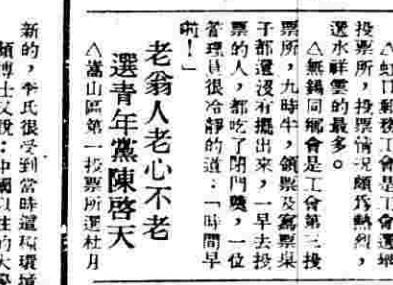 △虹口郵務工會是工會選舉
投票所，投票情況頗爲熱烈，
選水祥雲的最多。
△無錫同鄉會是工會第三投
票所，九時半，領票及寫票桌
子都還沒有擺出來，一早去投
票的人，都吃了閉門羹，一位
管理員很冷靜的道：「時間早
啦！」
老翁人老心不老
選青年黨陳啓天
△嵩山區第一投票所選杜月
新的，李氏很受到當時這種環境
頡博士又說：中國以姓的大學